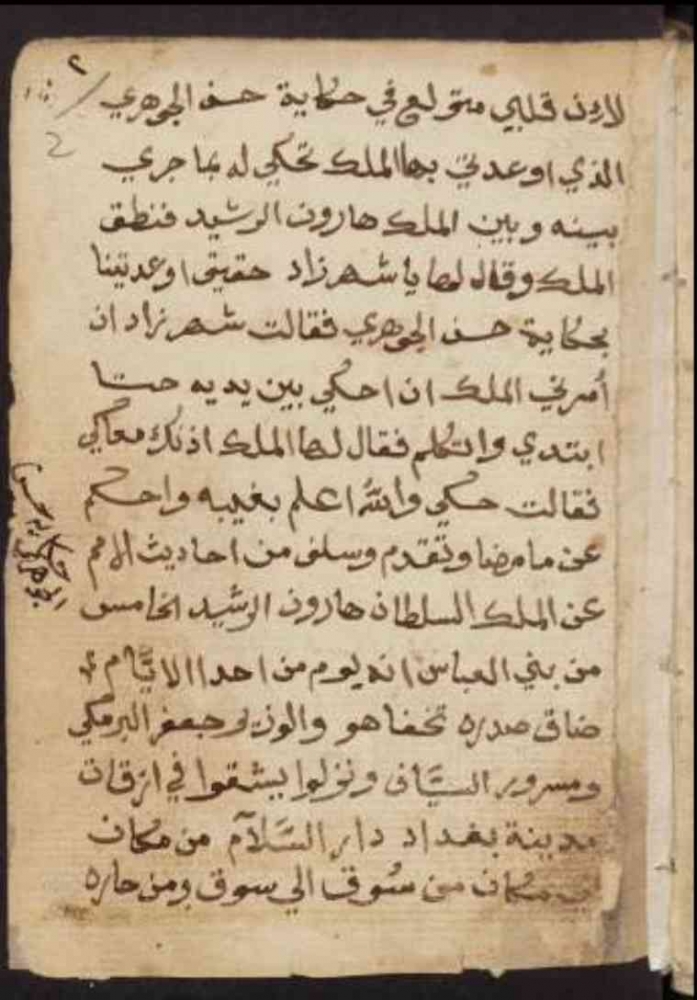 ٢
2
لاءن قلبي متولع في حكاية حسن الجوهري
الذي اوعدتي بها الملك تحكي له بما جري
بينه وبين الملك هارون الرشيد فنطق
الملك وقال لها يا شهرزاد حقيق اوعدتينا
بحكاية حسن الجوهري فقالت شهرزاد ان
أمرني الملك ان احكي بين يديه حتا
ابتدي واتكلم فقال لها الملك اذنك معاكي
فقالت حكي والله اعلم بغيبه واحكم
عن ما مضا وتقدم وسلف من احاديث الامم
عن الملك السلطان هارون الرشيد الخامس
من بني العباس انه ليوم من احدا الايَّام
ضاق صدره تخفا هو والوزير جعفر البرمكي
ومسرور السيَّاف ونزلوا يشقوا في ازقات
مدينة بغداد دار السَّلآم من مكان
الي مكان من سُوق الي سوق ومن حاره
حكاية حسن
الجوهري